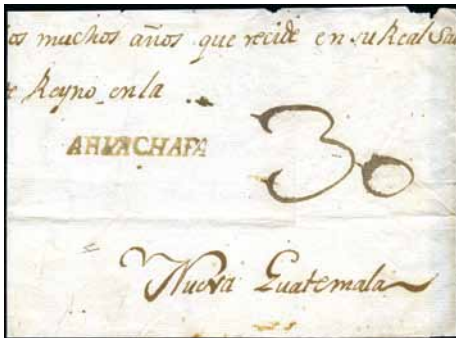 os muchos años que recide en su Real Sa
e Reyno en la
AHVACHAPA
30
Nueva Guatemala